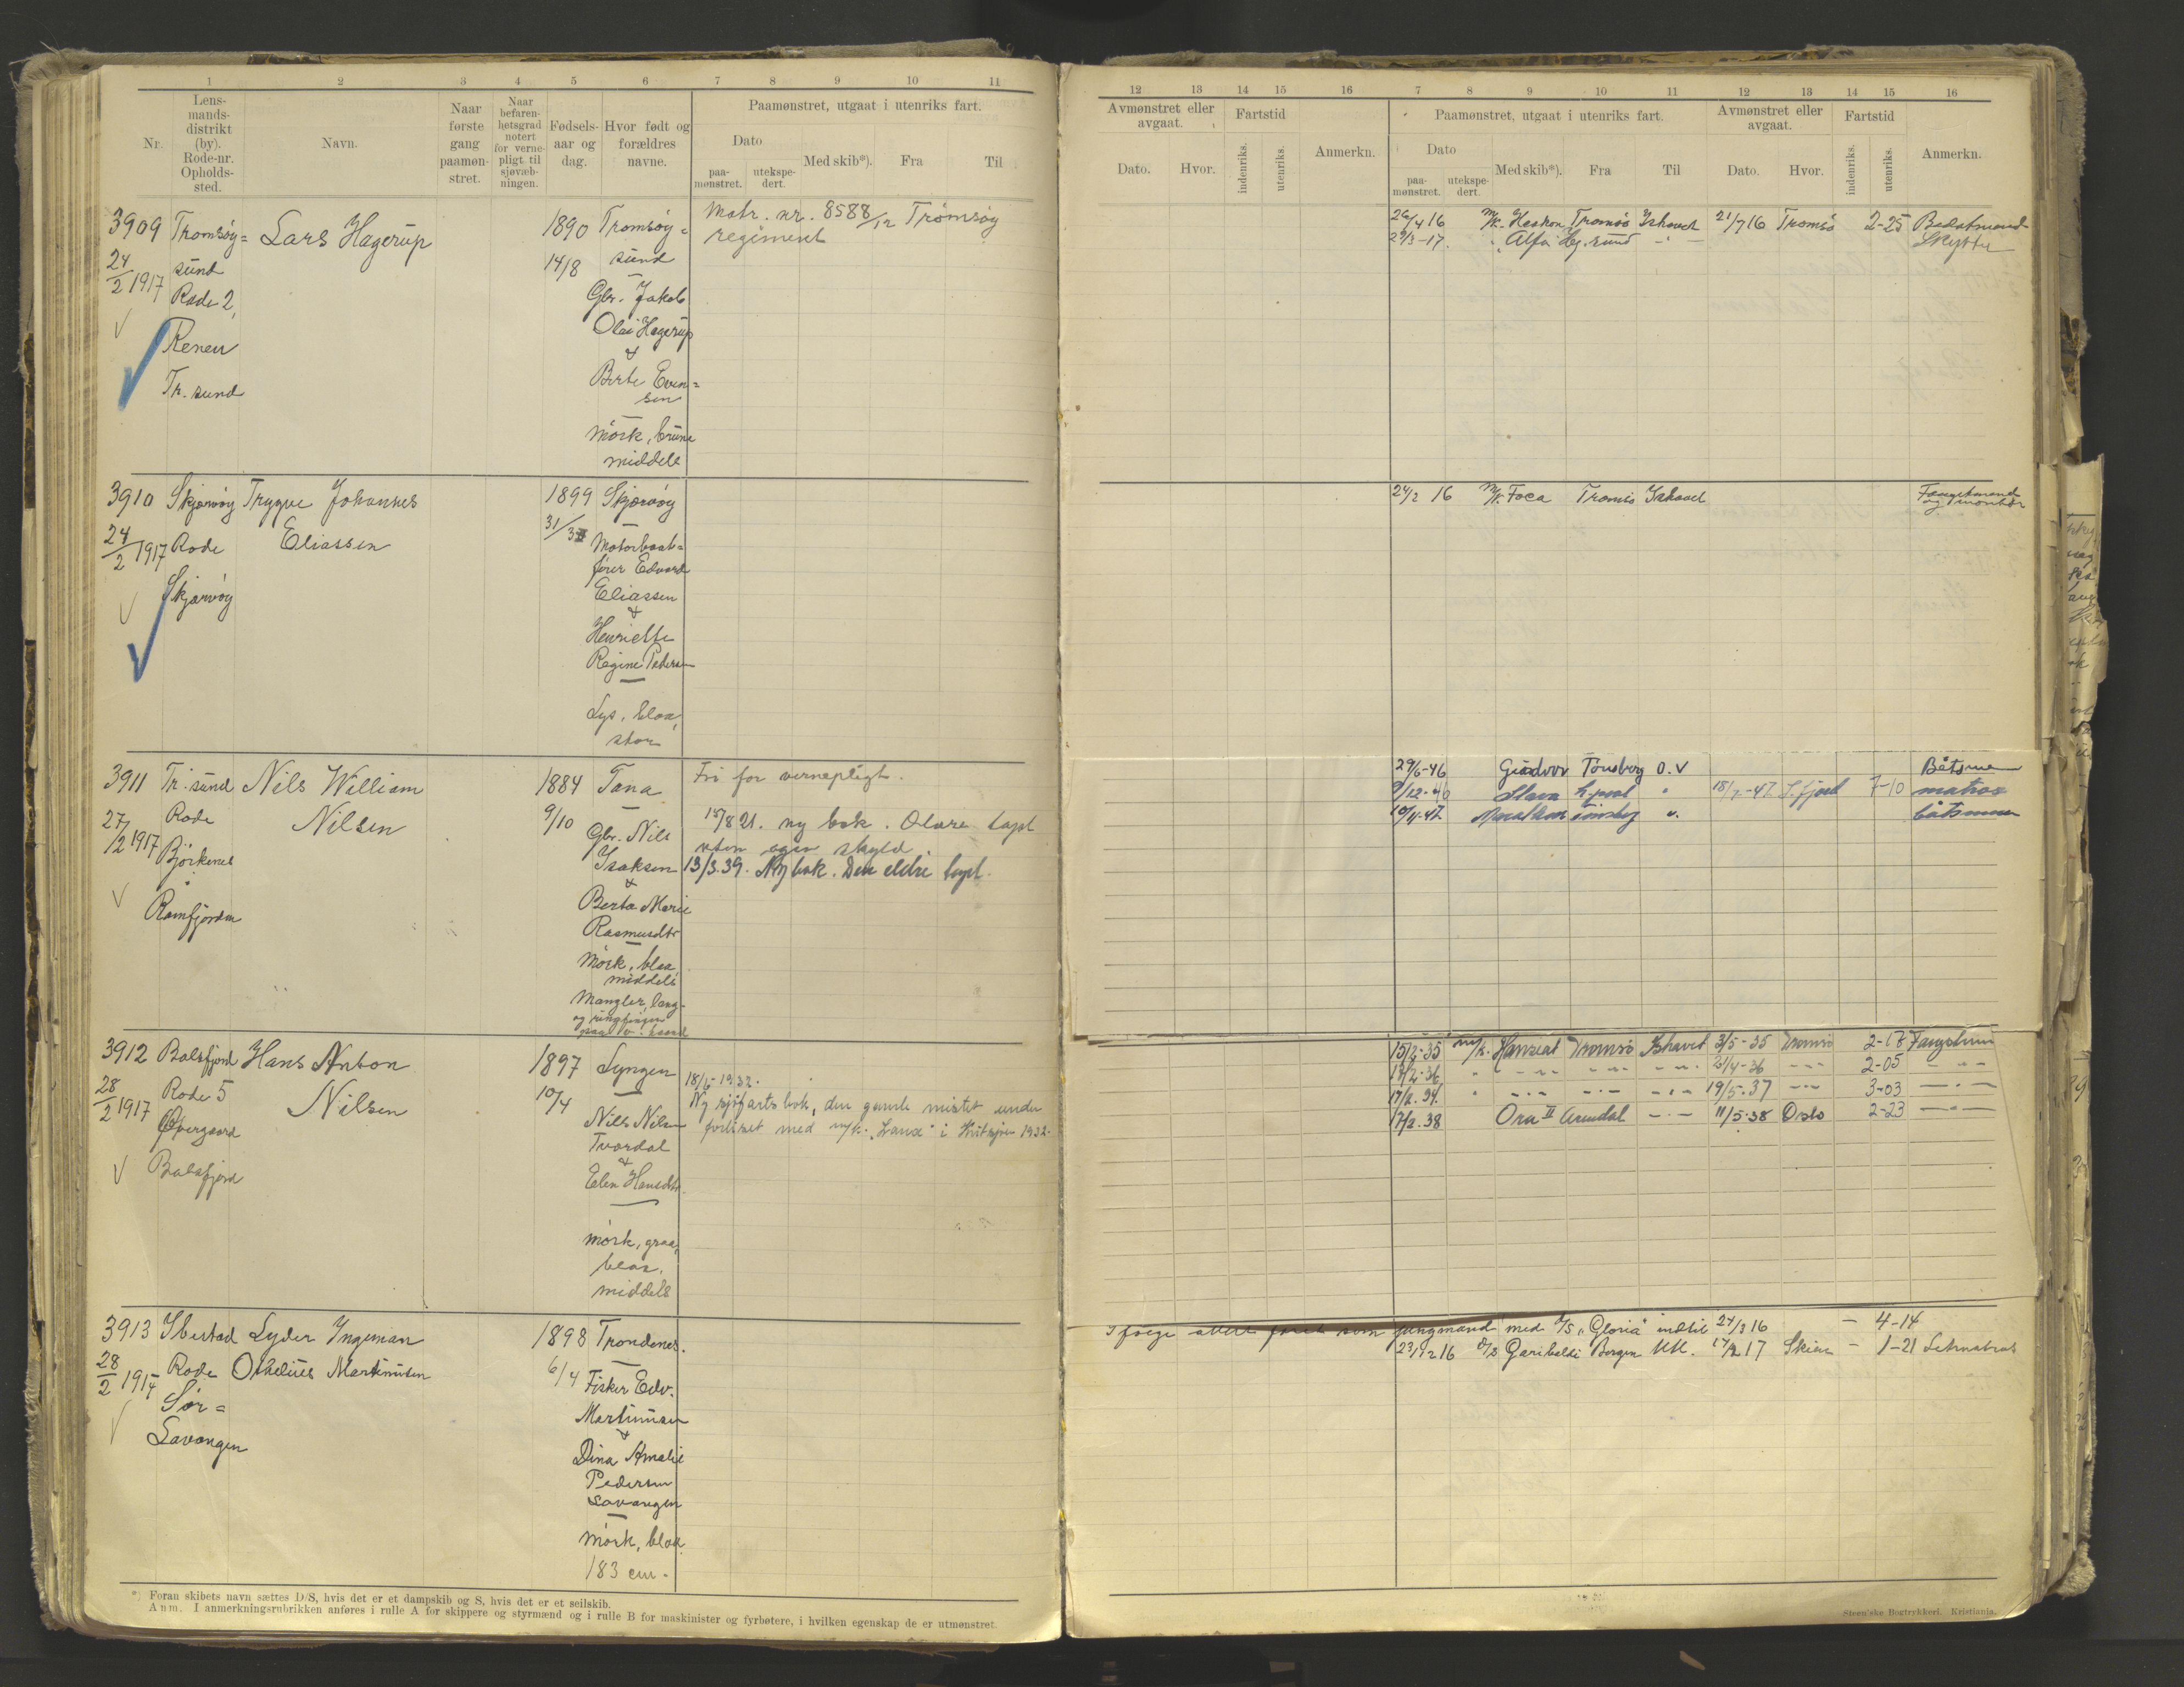 1 2 3 4 5 6 7 8 9 10 11
Nr.
Lens-
mands-
distrikt
(by).
Rode-nr.
Opholds-
sted.
Navn.
Naar
første
gang
paamøn-
stret.
Naar
befaren-
hetsgrad
notert
for verne-
pligt til
sjøvæb-
ningen.
Fødsels-
aar og
dag.
Hvor født og
forældres
navne.
Paamønstret, utgaat i utenriks fart.
Dato
paa-
mønstret.
utekspe-
dert.
Med skib*).
Fra
Til
3909 Tromsøy= Lars Hagerup 1890 Tromsøy=
24/2 1917 sund 14/8 sund
Rode 2,
Renen
Tr. sund
Gbr. Jakob
Olai Hagerup
&
Berte Even=
sen
mörk, brune
middels
Matr. nr. 8588/12 Tromsøy
regiment
3910 Skjærvöy Trygve Johannes 1899 Skjærvöy
24/2 1917 Rode Eliassen 31/3
Skjærvöy
Motorbaat=
fører Edvard
Eliassen
&
Henriette
Regine Pedersen
Lys, blaa,
stor
3911 Tr. sund Nils William 1884 Tana
27/2 1917 Rode Nilsen 9/10
Björkenes
Ramfjorden
Gbr. Nils
Isaksen
&
Berta Marie
Rasmusdtr
Mörk, blaa
middels
Mangler lang-
og ringfinger
paa v. haand
Fri for vernepligt.
15/8 21. ny bok. Olare tapt
uten egen skyld.
13/3.39. Ny bok. Den eldre tapt.
3912 Balsfjord Hans Anton 1897 Lyngen
28/2 1917 Rode 5 Nilsen 10/4
Øvergaard
Balsfjord
Nils Nilsen
Tvordal
&
Elen Hansdtr.
mörk, graa,
blaa,
middels
18/6-1932.
Ny sjöfartsbok, den gamle mistet under
forliset med m/k. "Lanx" i Kvitsjøen 1932.
3913 Ibestad Lyder Ingeman 1898 Trondenes.
28/2 1917 Rode Othelius Martinusen 6/4
Sør=
Lavangen
Fisker Edv.
Martinusen
&
Dina Amalie
Pedersen
Lavangen
mörk, blaa
183 cm.
*) Foran skibets navn sættes D/S, hvis det er et dampskib og S, hvis det er et seilskib.
Anm. I anmerkningsrubrikken anføres i rulle A for skippere og styrmænd og i rulle B for maskinister og fyrbøtere, i hvilken egenskap de er utmønstret.
12 13 14 15 16 7 8 9 10 11 12 13 14 15 16
Avmønstret eller
avgaat.
Dato. Hvor.
Fartstid
indenriks. utenriks.
Anmerkn.
Paamønstret, utgaat i utenriks fart.
Dato
paa-
mønstret.
utekspe-
dert.
Med skib*). Fra Til
Avmønstret eller
avgaat.
Dato. Hvor.
Fartstid
indenriks. utenriks.
Anmerkn.
26/4 16 M/k. Haakon Tromsö Ishavet 21/7 16 Tromsö 2-25 Baadsmand
29/3-17. " Alfa Hj. sund -"- Skytter
24/2 16 M/k. Foca Tromsö Ishavet Fangstmand
og montör
29/6-46 Tönsberg O.V Båtsman
18/7-47 S.fjord 7-10 matros
10/11-47 båtsman
15/2-35 m/k. Hanseat Tromsö Ishavet 3/5-35 Tromsö 2-18 Fangstman
17/2-36 " -"- -"- -"- 21/4-36 -"- 2-05 -"-
17/2.37. " -"- -"- 19/5.37 -"- 3-03 -"-
17/2.38 Ora II Arendal -"- 11/5-38 Oslo 2-23 -"-
Ifølge attest faret som jungmand med S/S "Gloria" indtil 24/3 16 - 4-14
23/12 16 D/S Garibaldi Bergen UK. 14/2 17 Skien - 1-21 Letmatros
Steen'ske Bogtrykkeri. Kristiania.